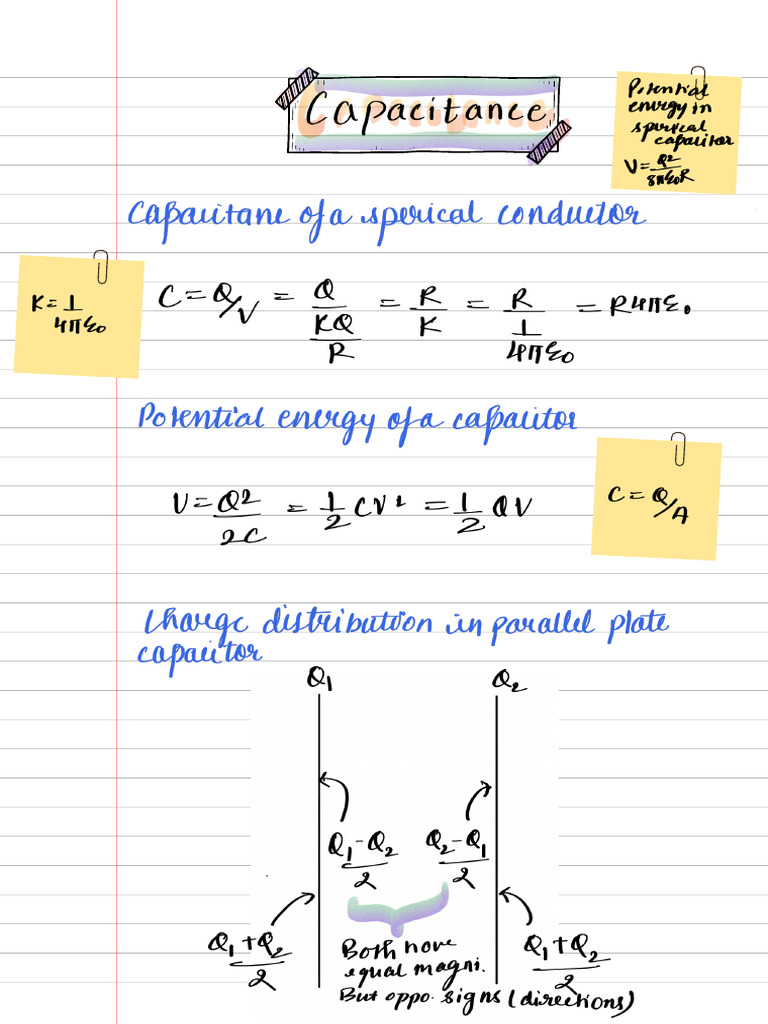 Capacitance
Potential
energy in
sperical
capacitor
V = Q²/8πε₀R
Capacitane of a sperical conductor
K = 1/4πε₀
C = Q/V = Q/(KQ/R) = R/K = R/(1/4πε₀) = R4πε₀
Potential energy of a capacitor
C = Q/A
V = Q²/2C = 1/2 CV² = 1/2 QV
Charge distribution in parallel plate
capacitor
Q₁ Q₂
Q₁-Q₂/2 Q₂-Q₁/2
Q₁+Q₂/2 Q₁+Q₂/2
Both have
equal magni.
But oppo. signs (directions)